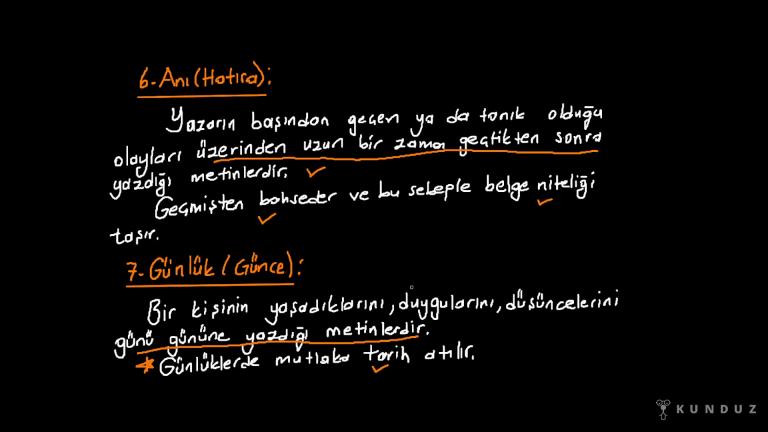 6-Anı (Hatıra):
Yazarın başından geçen ya da tanık olduğu
olayları üzerinden uzun bir zaman geçtikten sonra
yazdığı metinlerdir.
Geçmişten bahseder ve bu sebeple belge niteliği
taşır.
7-Günlük (Günce):
Bir kişinin yaşadıklarını, duygularını, düşüncelerini
günü gününe yazdığı metinlerdir.
Günlüklerde mutlaka tarih atılır.
KUNDUZ